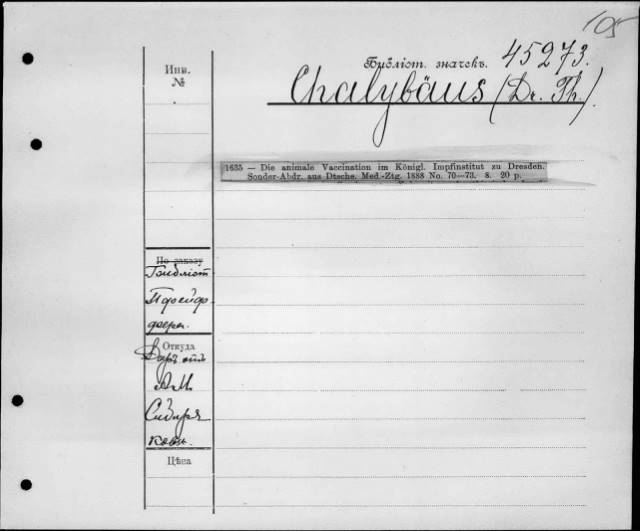 105
Инв.
№
Библіот. значекъ. 45273.
Chalybäus (Dr. Th).
1635 — Die animale Vaccination im Königl. Impfinstitut zu Dresden.
Sonder-Abdr. aus Dtsche. Med.-Ztg. 1888 No. 70—73. 8. 20 p.
По заказу
Библіот
Пфейф
фера.
Откуда
Даръ отъ
А. И.
Сибиря
кова.
Цѣна